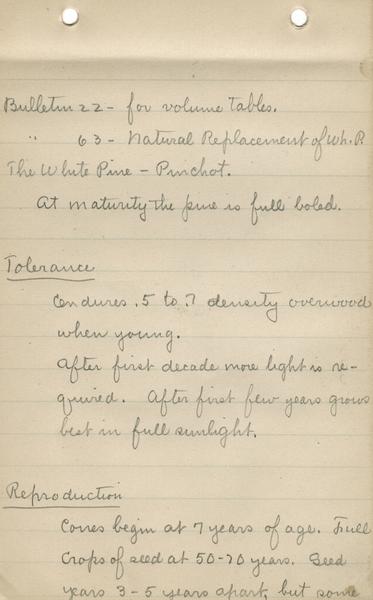 Bulletin 22 - for volume tables.
" 63 - Natural Replacement of Wh. P.
The White Pine - Pinchot.
At maturity the pine is full boled.
Tolerance
Endures .5 to .7 density overwood
when young.
After first decade more light is re-
quired. After first few years grows
best in full sunlight.
Reproduction
Cones begin at 7 years of age. Full
Crops of seed at 50-70 years. Seed
years 3-5 years apart, but some